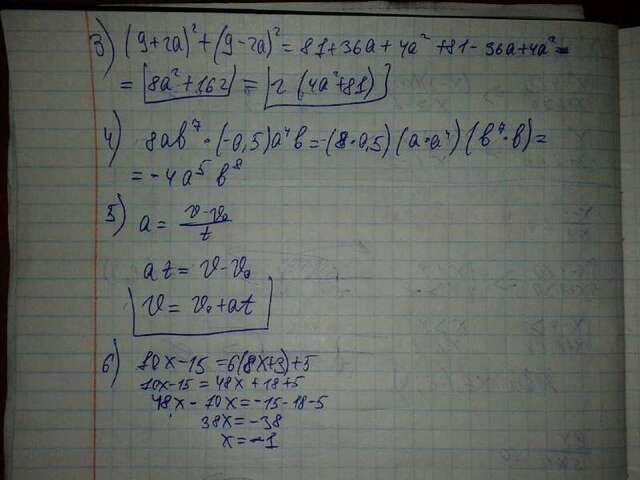 3) (9+2a)² + (9-2a)² = 81+36a+4a² +81-36a+4a² =
= 8a²+162 = 2 (4a²+81)
4) 8ab⁷ · (-0,5)a⁴b = -(8·0,5) (a·a⁴) (b⁷·b) =
= -4a⁵b⁸
5) a = (v-v₀)/t
at = v-v₀
v = v₀+at
6) 10x-15 = 6(8x+3)+5
10x-15 = 48x+18+5
48x-10x = -15-18-5
38x = -38
x = -1